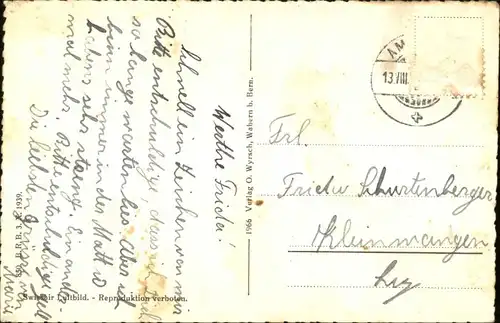 Werthe Frieda!
Schnell ein Zeichen von mir
Bitte entschuldige, dass ich dich
so lange warten lies. Aber ich
bin immer in der Matt u
habens sehr streng. Ein ander
mal mehr. Bitte entschuldige
Die liebsten Grüsse
Marie
Swissair Luftbild. - Reproduktion verboten.
R. B. 3. 1939.
1966 Verlag O. Wyrsch, Wabern b. Bern.
AM
13.VIII.
Frl.
Frieda Schurtenberger
Kleinwangen
Luz.